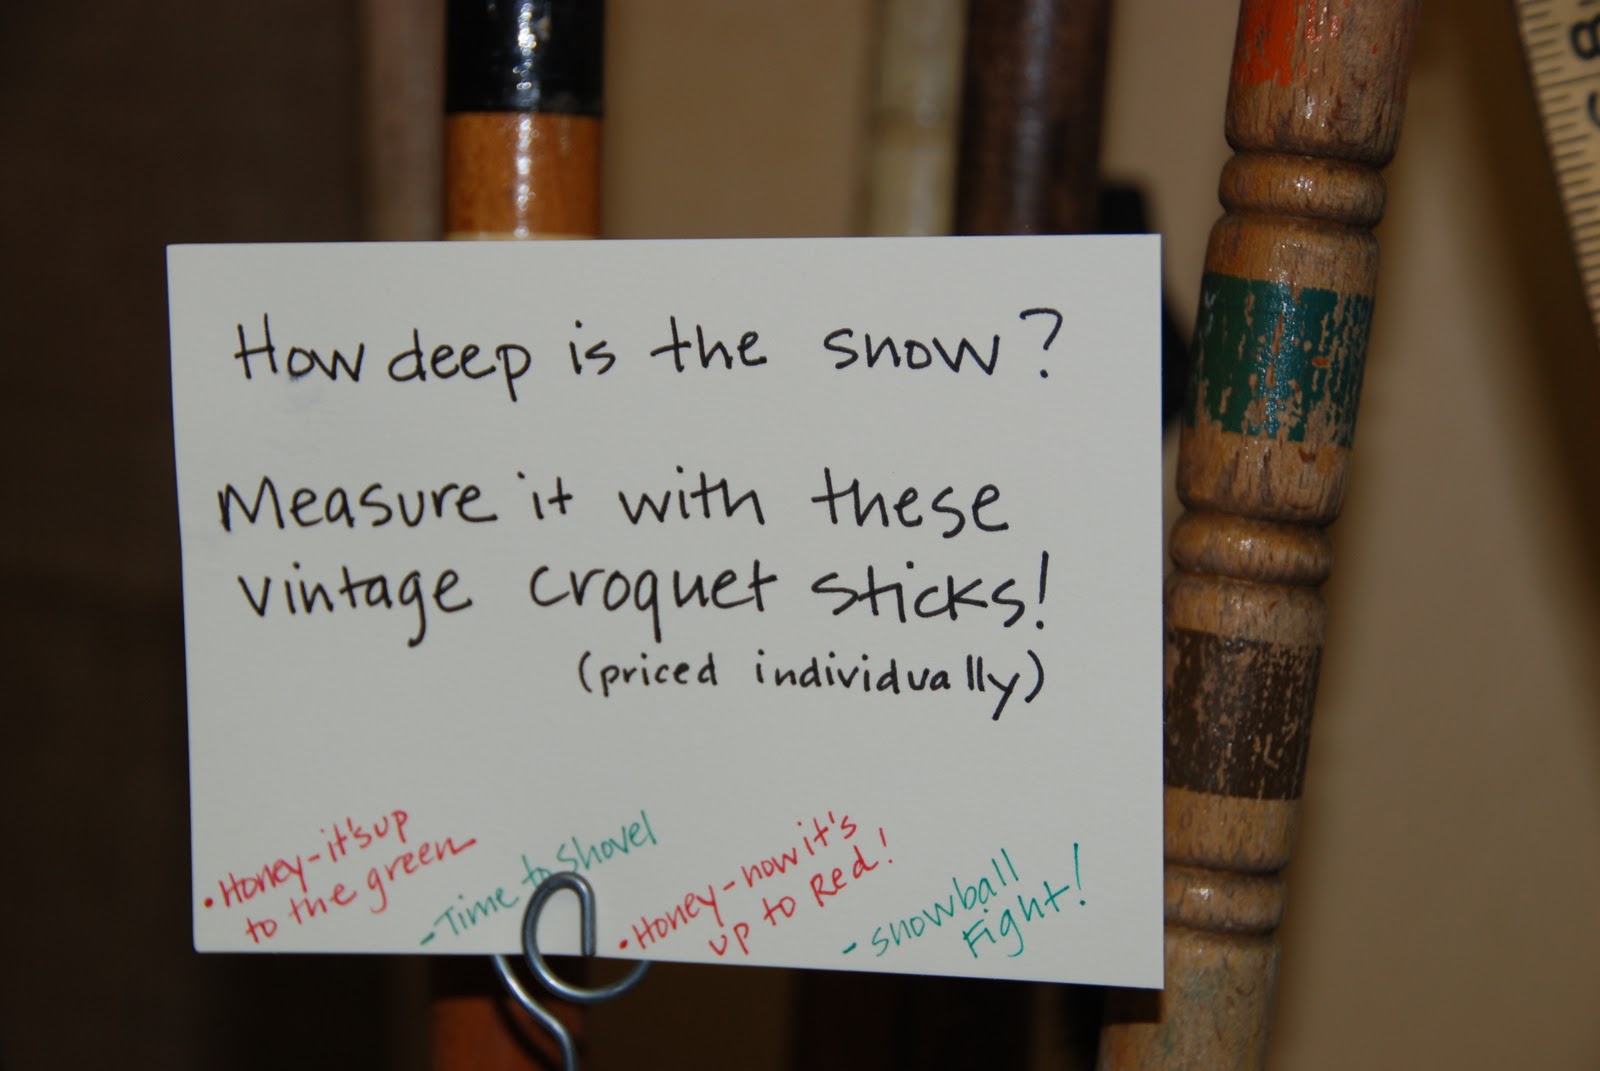 How deep is the snow?
Measure it with these
vintage croquet sticks!
(priced individually)
• Honey-it's up
to the green
- Time to shovel
• Honey-now it's
up to Red!
- snowball
Fight!
8